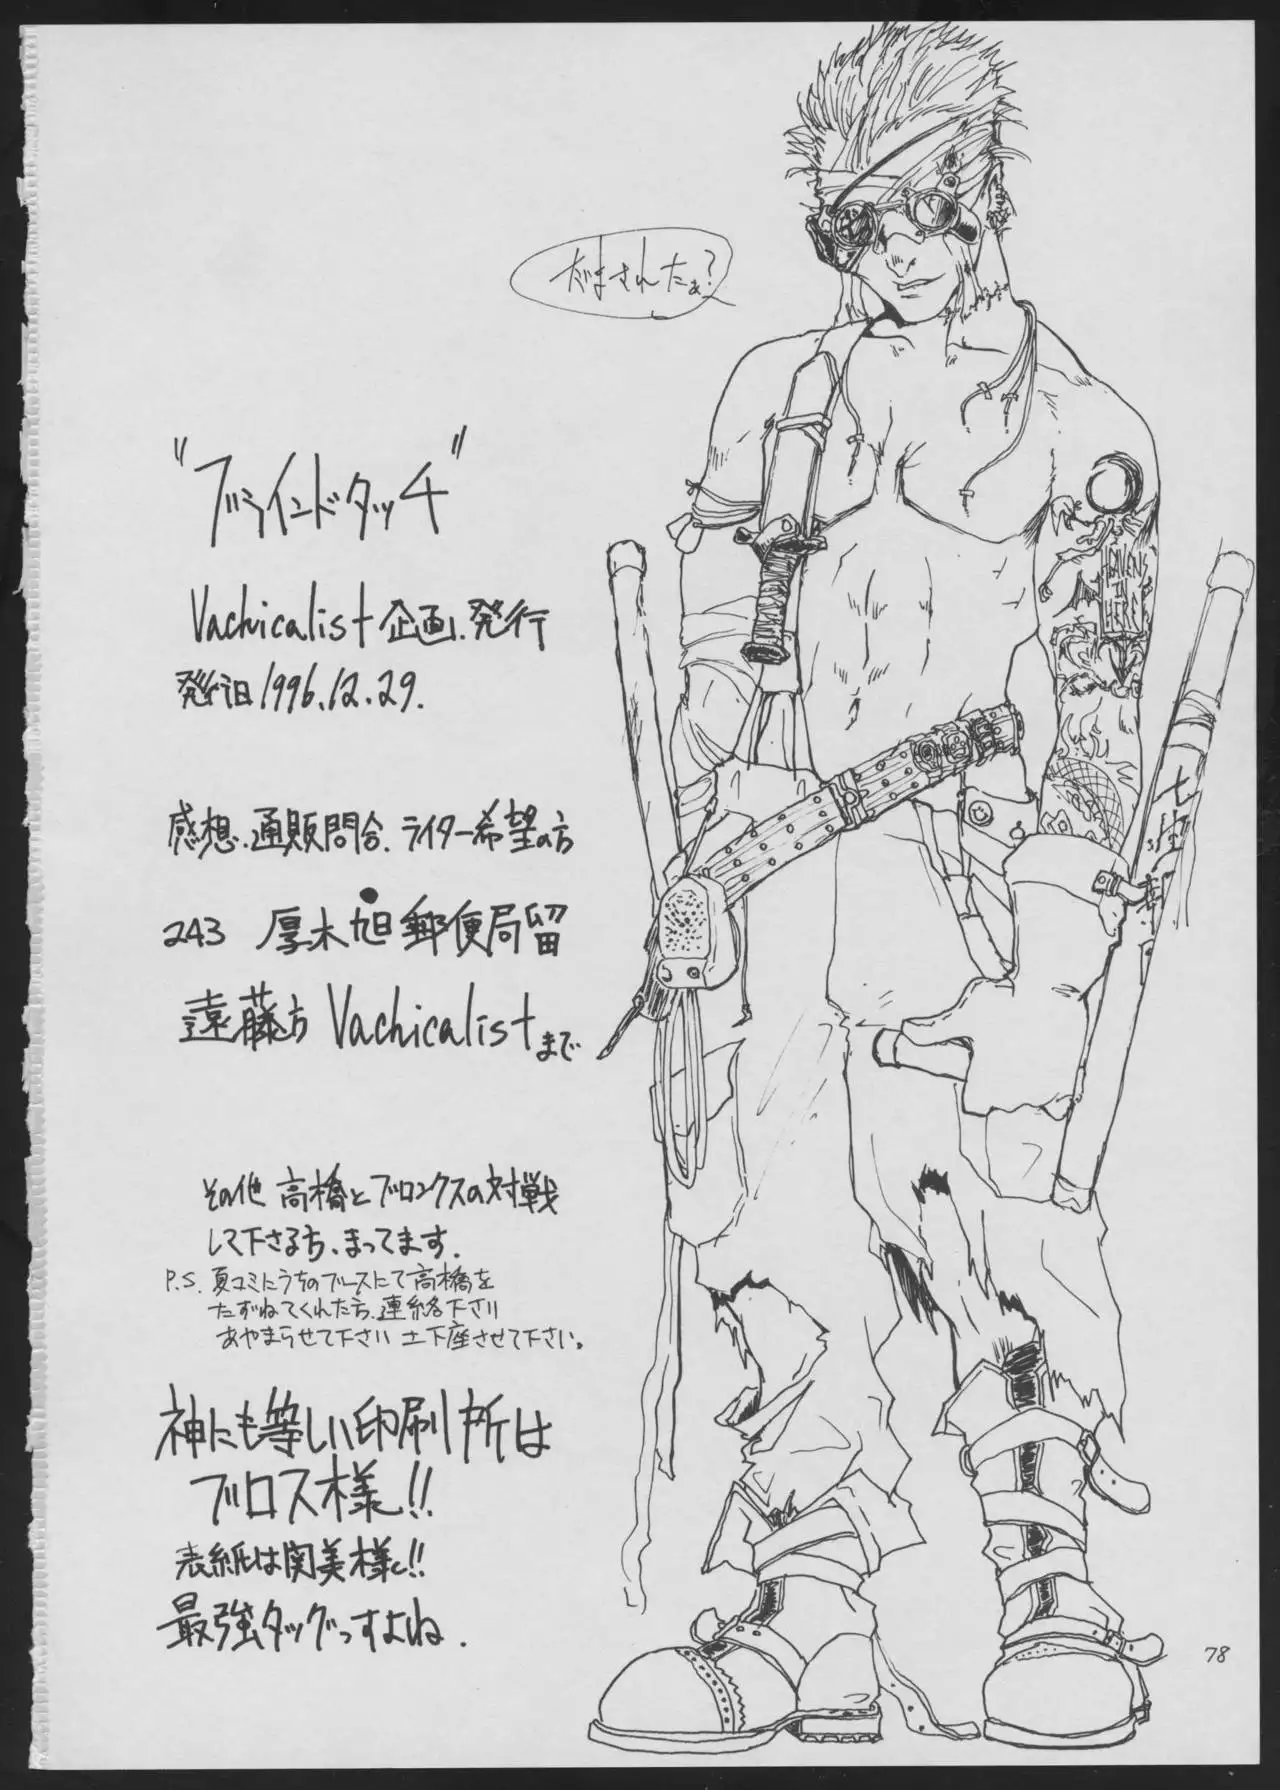 だまされたぁ?
"ブラインドタッチ"
Vachicalist企画、発行
発行日1996.12.29.
感想、通販問合、ライター希望の方
243 厚木・旭郵便局留
遠藤方 Vachicalistまで
その他 高橋とブロンクスの対戦
して下さる方、まってます。
P.S. 夏コミにうちのブースにて高橋を
たずねてくれた方、連絡下さい
あやまらせて下さい 土下座させて下さい。
神にも等しい印刷所は
ブロス様!!
表紙は関美様!!
最強タッグっすよね.
HEAVENS
IN
HERE
78